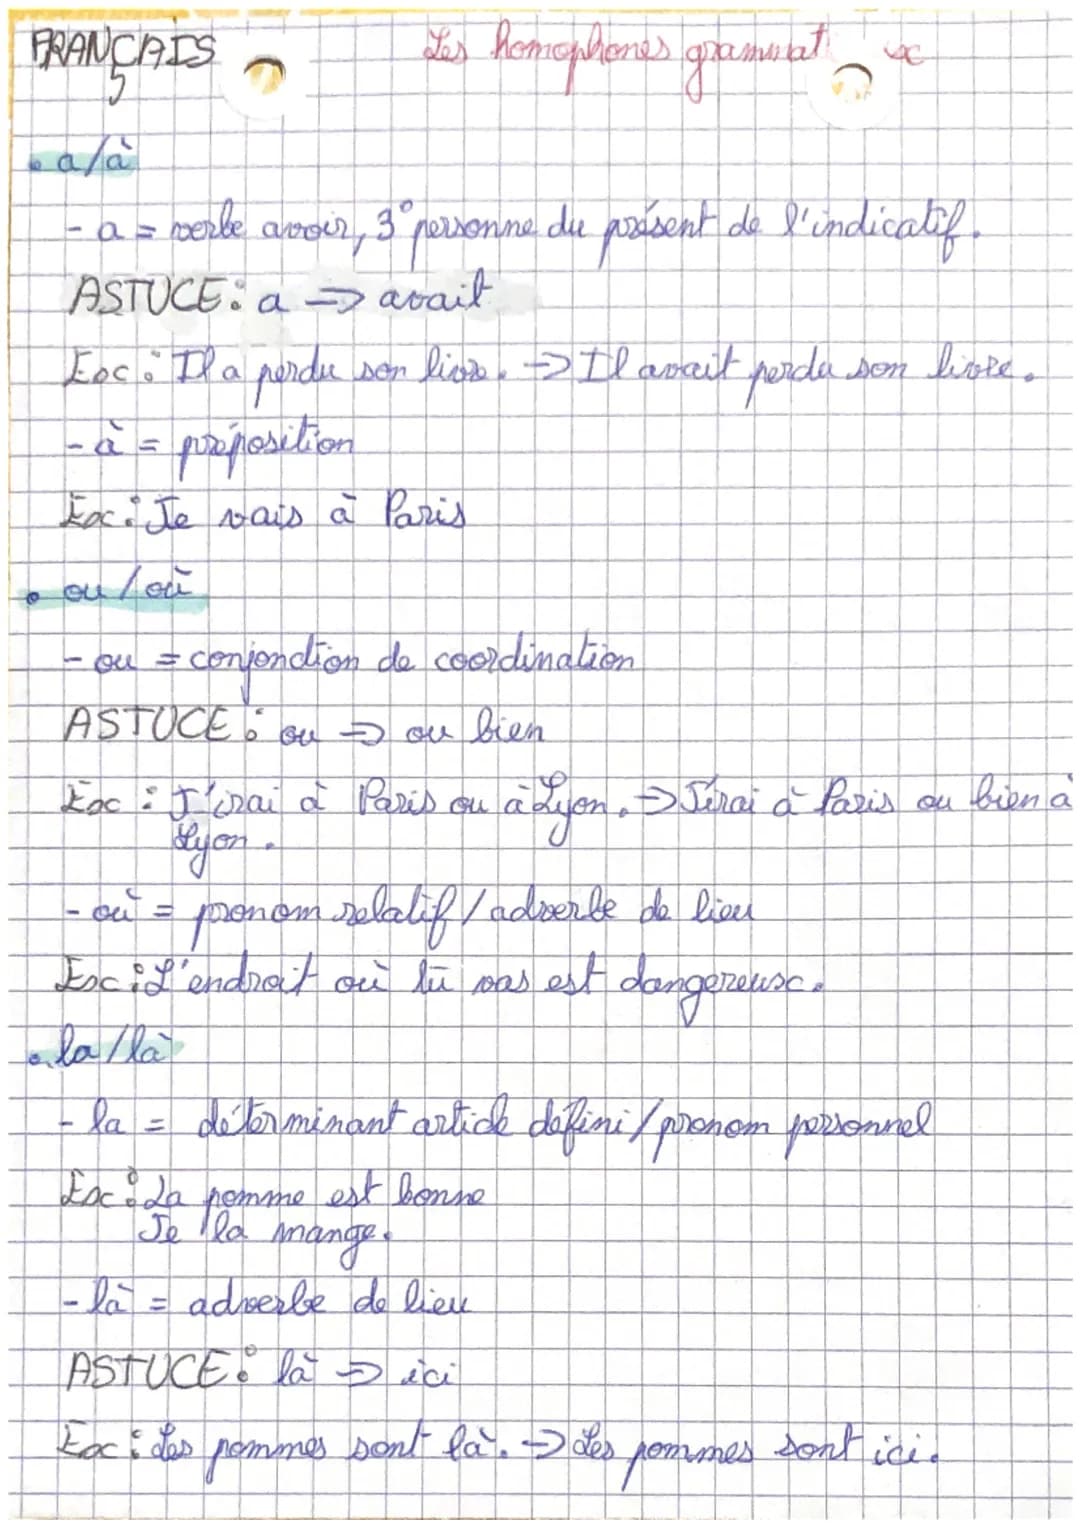 FRANÇAIS
Les homophones grammat x
• a/à
- a = verbe avoir, 3° personne du présent de l'indicatif.
ASTUCE : a => avait
Ex : Il a perdu son livre. -> Il avait perdu son livre.
- à = préposition
Ex : Je vais à Paris
• ou / où
- ou = conjonction de coordination
ASTUCE : ou => ou bien
Ex : J'irai à Paris ou à Lyon. => J'irai à Paris ou bien à
Lyon.
- où = pronom relatif / adverbe de lieu
Ex : L'endroit où tu vas est dangereux.
• la / là
- la = déterminant article défini / pronom personnel
Ex : La pomme est bonne
Je la mange.
- là = adverbe de lieu
ASTUCE : là => ici
Ex : Les pommes sont là. => Les pommes sont ici.